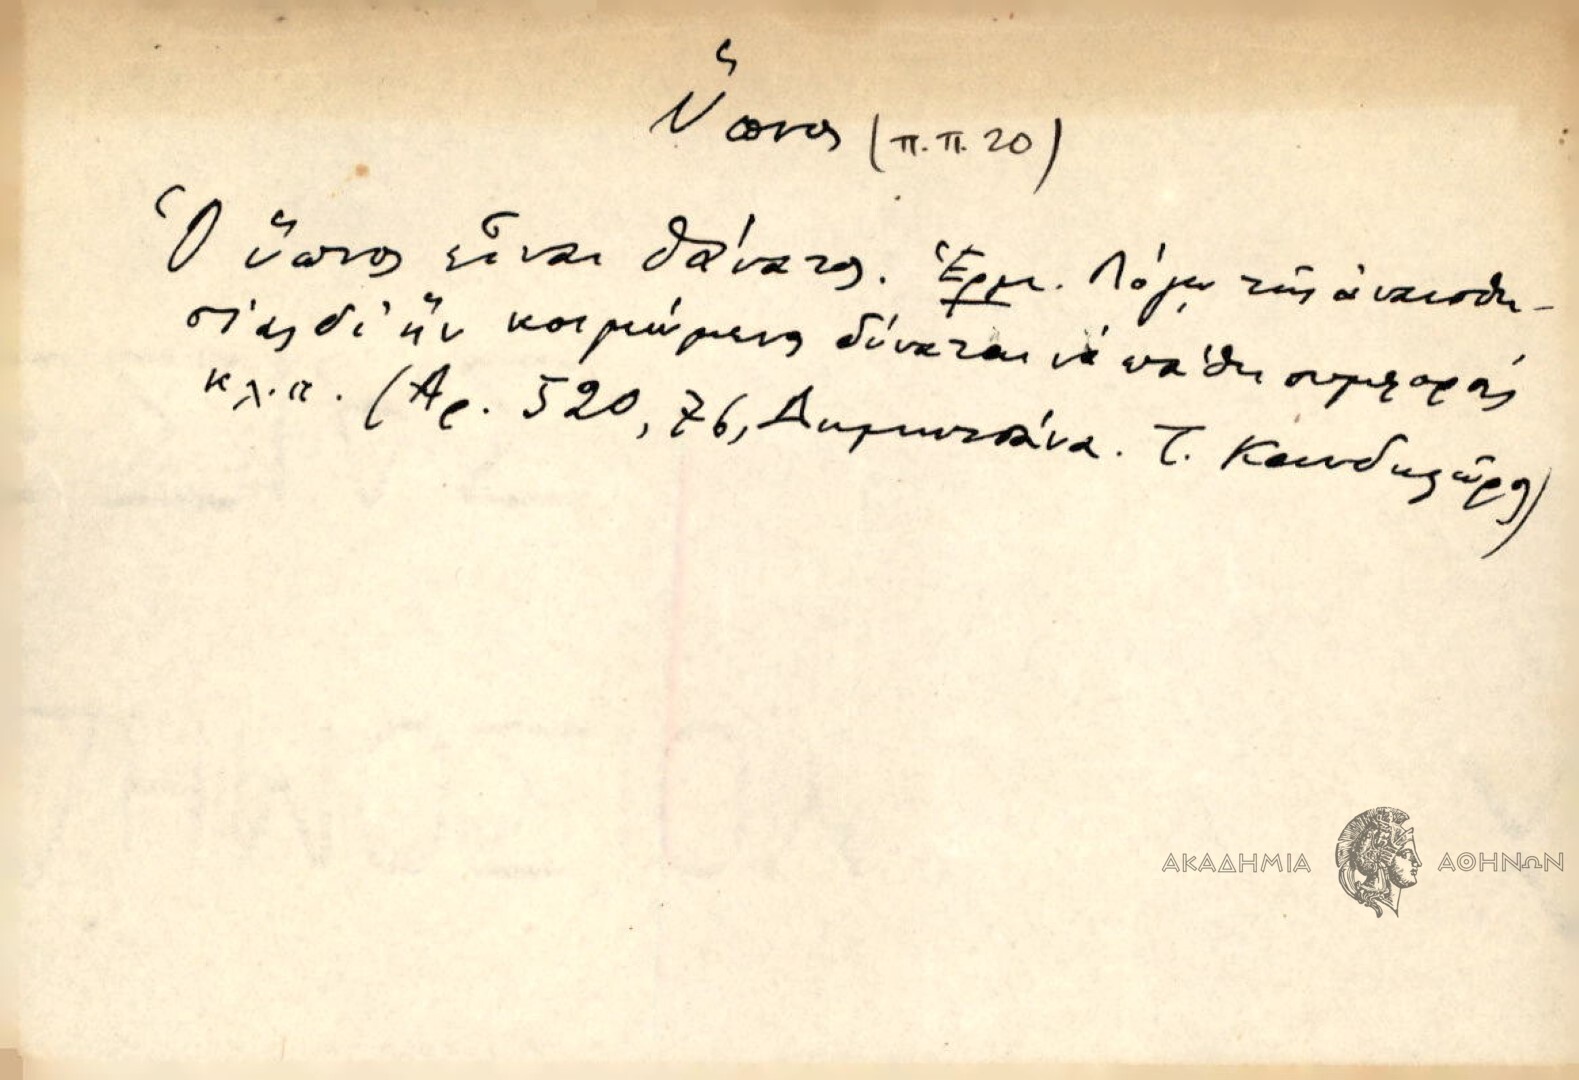 Ὕπνος (π.π. 20)
Ὁ ὕπνος εἶναι θάνατος. Ἑρμ. Λόγῳ τῆς ἀναισθη-
σίας δι' ἣν κοιμώμενος δύναται νὰ πάθη συμφορὰς
κ.λ.π. (Ἀρ. 520, 76, Δημητσάνα. Τ. Κανδηλῶρος)
ΑΚΑΔΗΜΙΑ ΑΘΗΝΩΝ